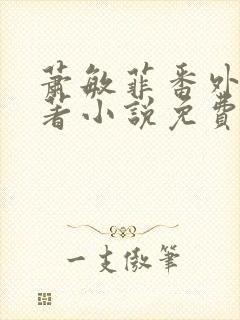 蕭敏菲番外
著小說免費
一支傲筆